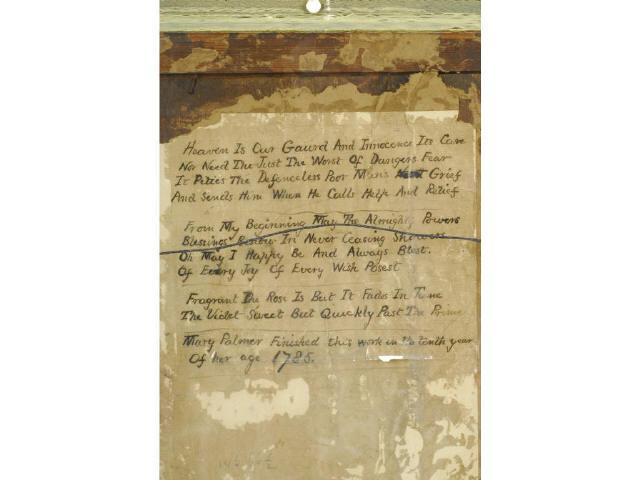 Heaven Is Our Gaurd And Innocence Its Care
Nor Need The Just The Worst Of Dangers Fear
It Peties The Defenceless Poor Man's Grief
And Sends Him When He Calls Help And Relief
From My Beginning May The Almighty Powers
Blessings Bestow In Never Ceasing Showers
Oh May I Happy Be And Always Blest.
Of Every Joy Of Every Wish Posest
Fragrant The Rose Is But It Fades In Time
The Violet Sweet But Quickly Past The Prime
Mary Palmer Finished this work in the tenth year
Of her age 1785.